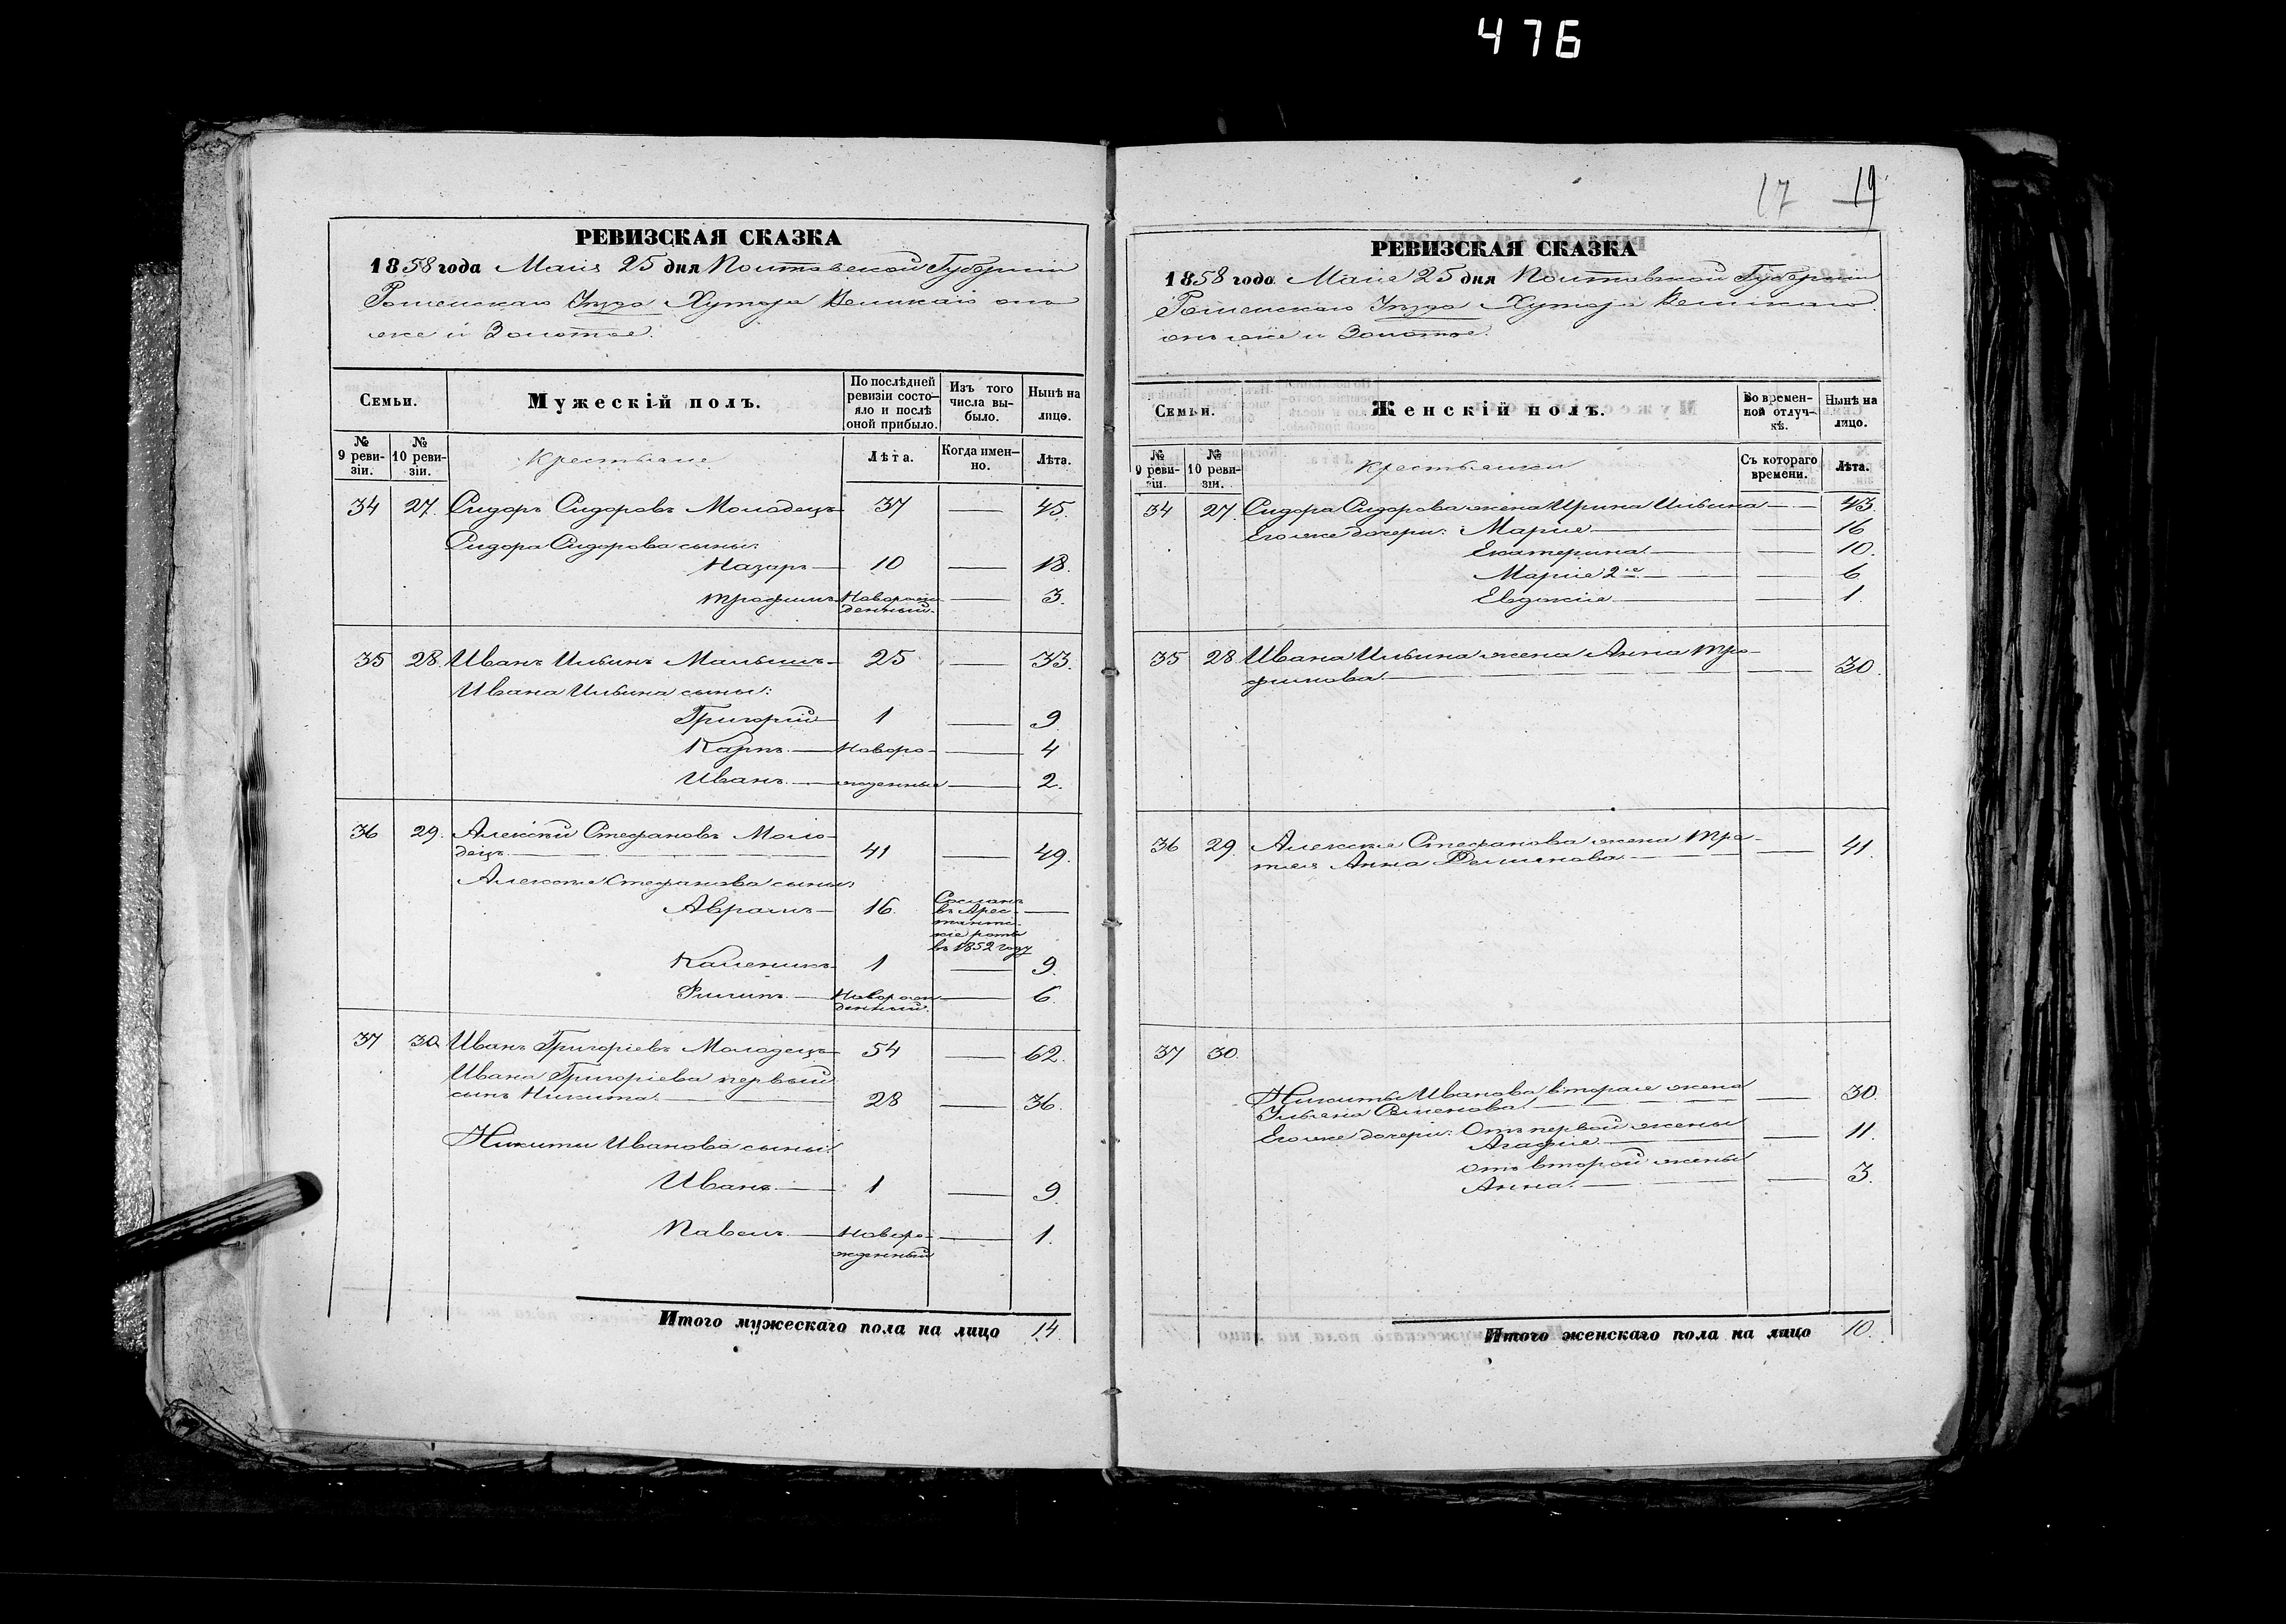 476
РЕВИЗСКАЯ СКАЗКА
1858 года Маія 25 дня Полтавской Губерніи
Роменскаго Уѣзда Хутора Великаго она
же и Золотое.
Семьи.
Мужескій полъ.
По послѣдней ревизіи состояло и послѣ оной прибыло.
Изъ того числа выбыло.
Нынѣ на лицо.
№ 9 ревизіи.
№ 10 ревизіи.
Крестьяне
Лѣта.
Когда именно.
Лѣта.
34 27. Сидоръ Сидоровъ Молодецъ 37 — 45.
Сидора Сидорова сыны:
Назаръ — 10 — 18.
Трофимъ Новорожденный. — 3.
35 28. Иванъ Ильинъ Малышъ 25 — 33.
Ивана Ильина сыны:
Григорій — 1 — 9
Карпъ — Новоро- — 4
Иванъ — жденные — 2.
36 29. Алексѣй Стефановъ Моло-
децъ — 41 — 49.
Алексѣя Стефанова сыны:
Аврамъ — 16. Сосланъ въ Арестантскіе роты въ 1852 году —
Каленикъ 1 — 9.
Филипъ — Новорожденный. — 6.
37 30. Иванъ Григоріевъ Молодецъ 54 — 62.
Ивана Григоріева первый
сынъ Никита. — 28 — 36.
Никиты Иванова сыны:
Иванъ — 1 — 9.
Павелъ — Новорожденный — 1.
Итого мужескаго пола на лицо 14.
17 19
РЕВИЗСКАЯ СКАЗКА
1858 года Маія 25 дня Полтавской Губерніи
Роменскаго Уѣзда Хутора Великаго
онъ же и Золотое.
Семьи.
Женскій полъ.
Во временной отлучкѣ.
Нынѣ на лицо.
№ 9 ревизіи.
№ 10 ревизіи.
Крестьянки
Съ котораго времени.
Лѣта.
34 27. Сидора Сидорова жена Ирина Ильина — 43.
Его же дочери: Марія — 16
Екатерина — 10.
Марія 2я — 6
Евдокія — 1.
35 28 Ивана Ильина жена Анна Тро-
фимова. — 30.
36 29. Алексѣя Стефанова жена Тре-
тья Анна Демьянова — 41.
37 30.
Никиты Иванова вторая жена
Ульяна Семенова — 30.
Его же дочери: Отъ первой жены
Агафія — 11.
отъ второй жены
Анна — 3.
Итого женскаго пола на лицо 10.